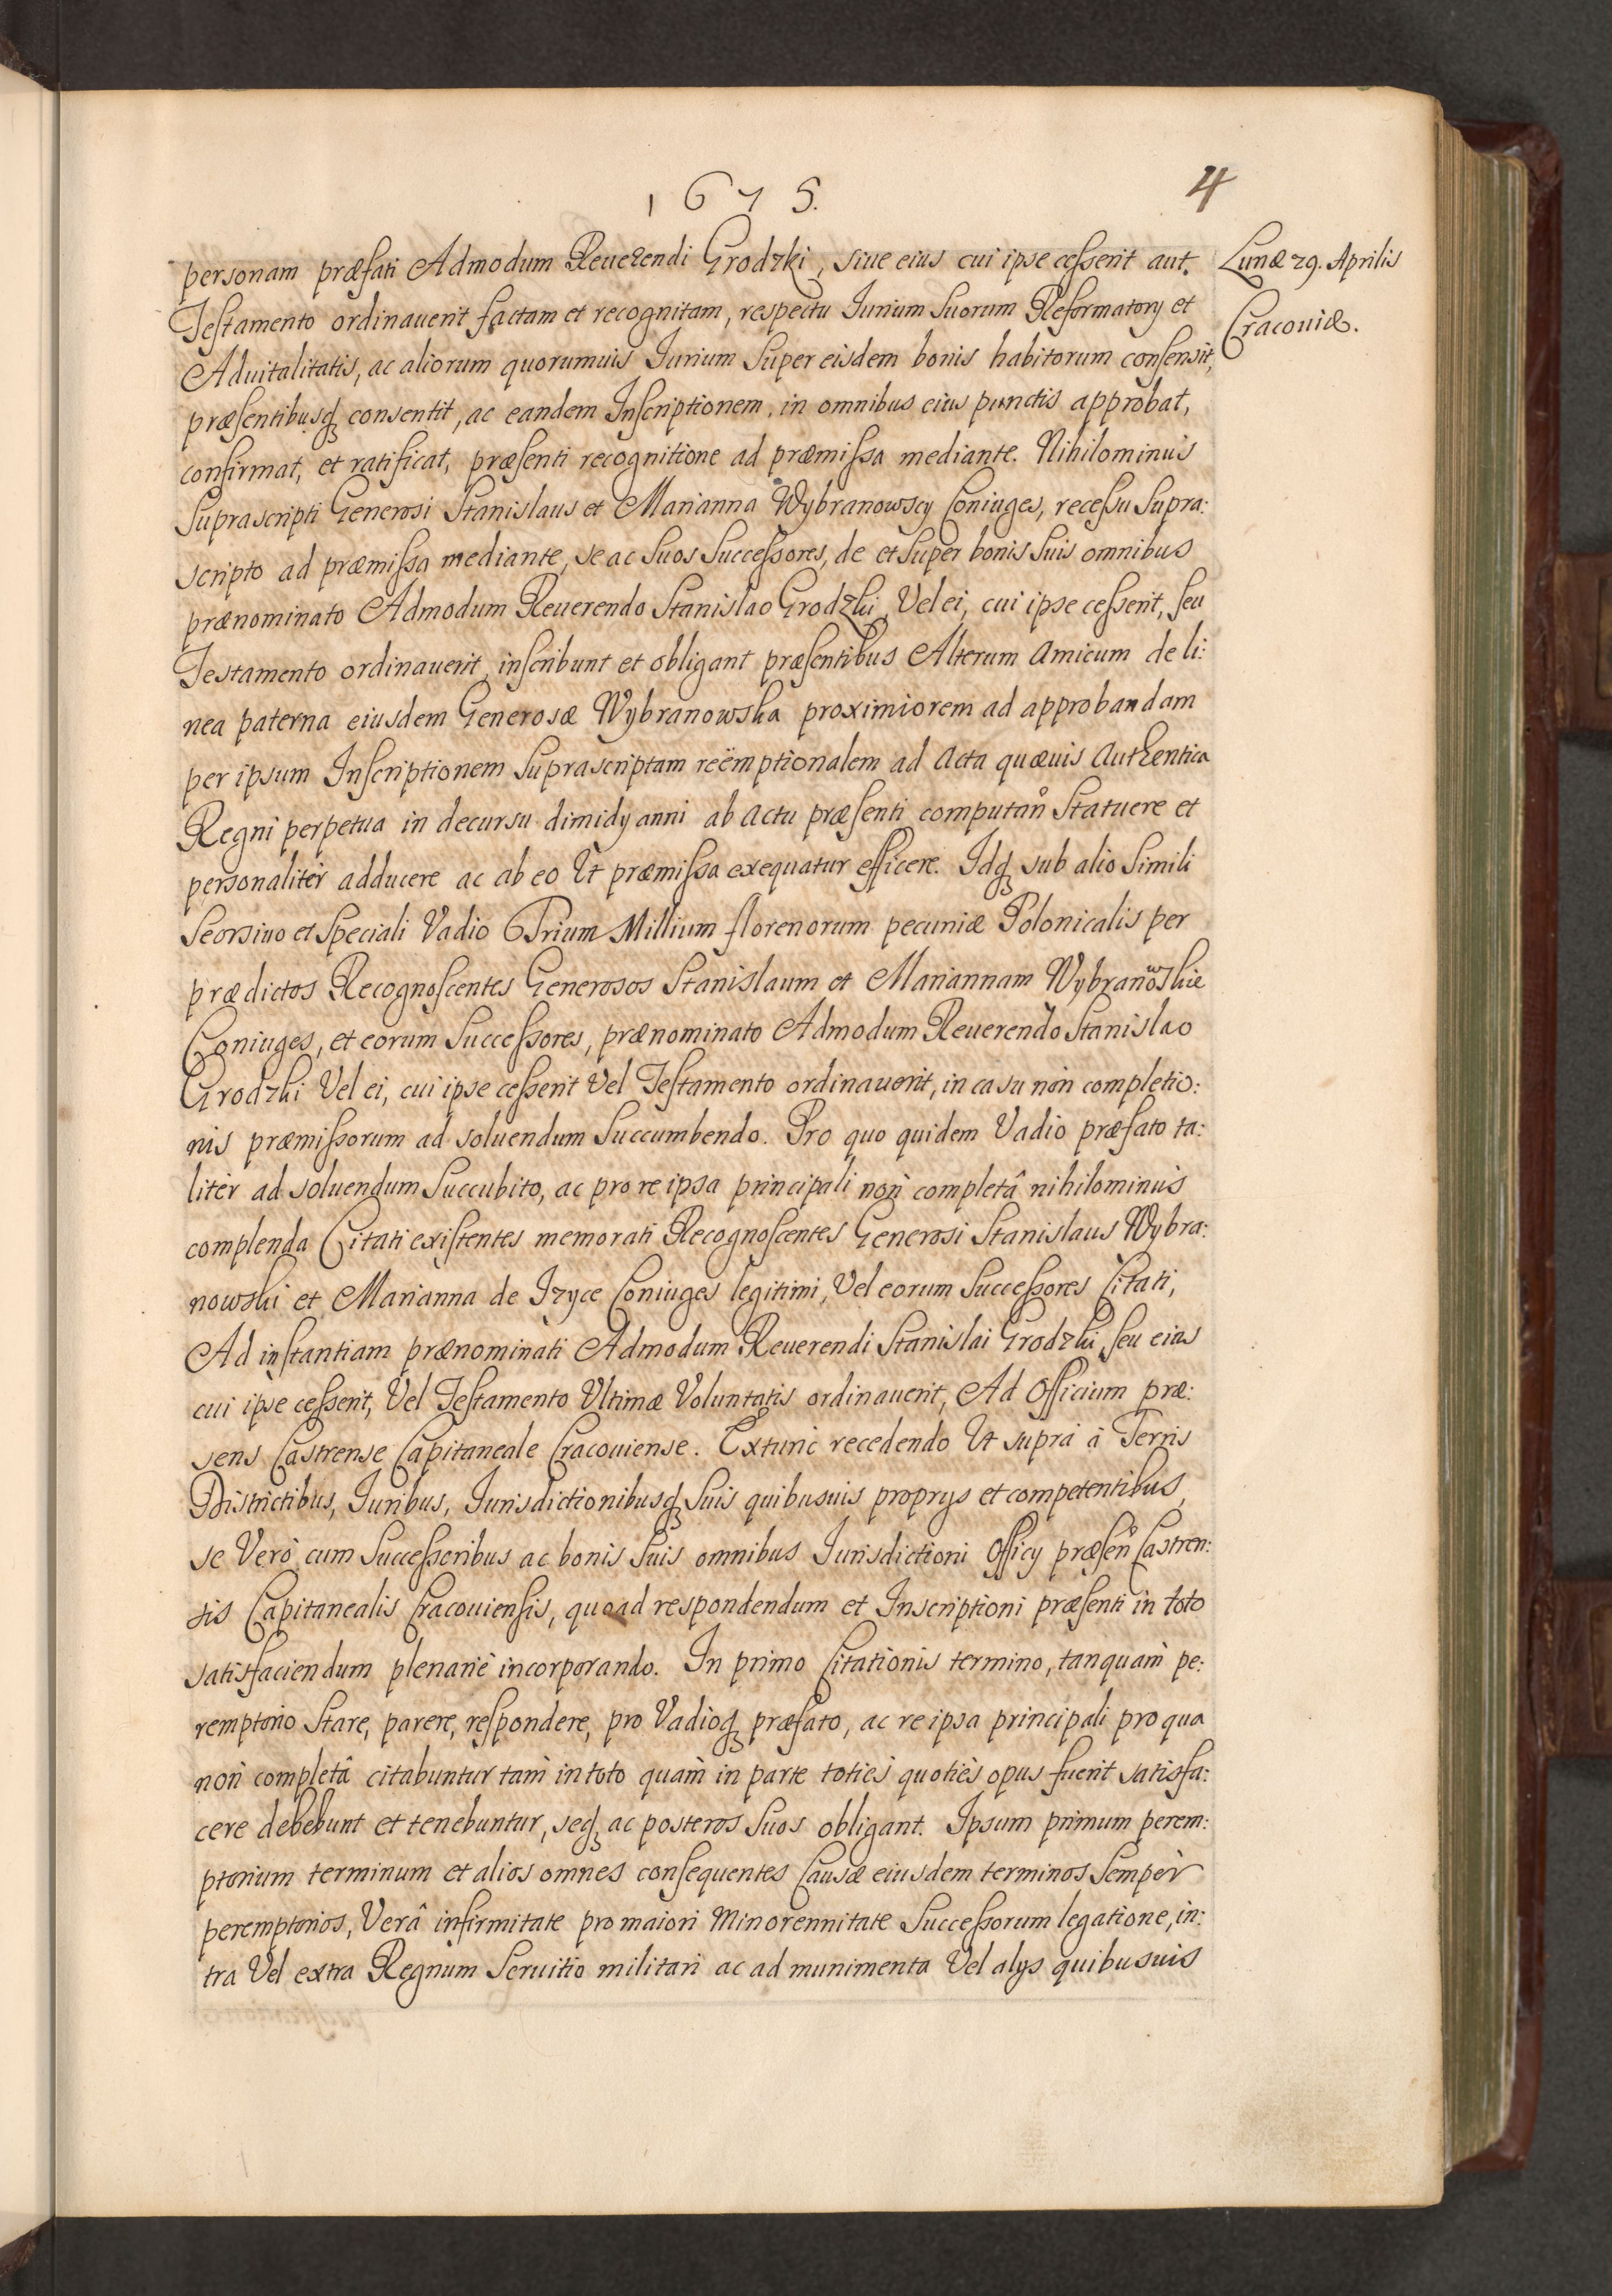 1675.
4
Lunæ 29. Aprilis
Cracouiæ.
personam præfati Admodum Reuerendi Grodzki, siue eius cui ipse cesserit aut
Testamento ordinauerit factam et recognitam, respectu Iurium suorum Reformatorÿ et
Aduitalitatis, ac aliorum quorumuis Iurium super eisdem bonis habitorum consensit,
præsentibusq consentit, ac eandem Inscriptionem in omnibus eius punctis approbat,
confirmat, et ratificat, præsenti recognitione ad præmissa mediante. Nihilominùs
Suprascripti Generosi Stanislaus et Marianna Wybranowscy Coniuges, recessu supra:
scripto ad præmissa mediante, se ac suos successores, de et super bonis suis omnibus
prænominato Admodum Reuerendo Stanislao Grodzki, Vel ei, cui ipse cesserit, seu
Testamento ordinauerit, inscribunt et obligant præsentibus Alterum Amicum de li:
nea paterna eiusdem Generosæ Wybranowska proximiorem ad approbandam
per ipsum Inscriptionem suprascriptam reëmptionalem ad Acta quæuis Authentica
Regni perpetua in decursu dimidÿ anni ab actu præsenti computan̊ Statuere et
personalitèr adducere ac ab eo Vt præmissa exequatur efficere. Idq sub alio simili
seorsiuo et speciali Vadio Trium Millium florenorum pecuniæ Polonicalis per
prædictos Recognoscentes Generosos Stanislaum et Mariannam Wybranowskie
Coniuges, et eorum successores, prænominato Admodum Reuerendo Stanislao
Grodzki Vel ei, cui ipse cesserit Vel Testamento ordinauerit, in casu non completio:
nis præmissorum ad soluendum succumbendo. Pro quo quidem Vadio præfato ta:
litèr ad soluendum succubito, ac pro re ipsa principali non completâ nihilominùs
complenda Citati existentes memorati Recognoscentes Generosi Stanislaus Wybra:
nowski et Marianna de Izyce Coniuges legitimi, Vel eorum successores Citati,
Ad instantiam prænominati Admodum Reuerendi Stanislai Grodzki, seu eius
cui ipse cesserit, Vel Testamento Vltimæ Voluntatis ordinauerit, Ad Officium præ:
sens Castrense Capitaneale Cracouiense. Extunc recedendo Vt suprà à Terris
Districtibus, Iuribus, Iurisdictionibusq suis quibusuis proprÿs et competentibus,
se Verò cum successoribus ac bonis suis omnibus Iurisdictioni Officÿ præsen̊ Castren:
sis Capitanealis Cracouiensis, quoad respondendum et Inscriptioni præsenti in toto
satisfaciendum plenariè incorporando. In primo Citationis termino, tanquàm pe:
remptorio Stare, parere, respondere, pro Vadioq præfato, ac re ipsa principali pro qua
non completâ citabuntur tàm in toto quàm in parte totiès quotiès opus fuerit satisfa:
cere debebunt et tenebuntur, seq ac posteros suos obligant. Ipsum primum perem:
ptorium terminum et alios omnes consequentes Causæ eiusdem terminos sempèr
peremptorios, Verâ infirmitate pro maiori Minorennitate successorum legatione, in:
tra Vel extra Regnum Seruitio militari ac ad munimenta Vel alÿs quibusuis